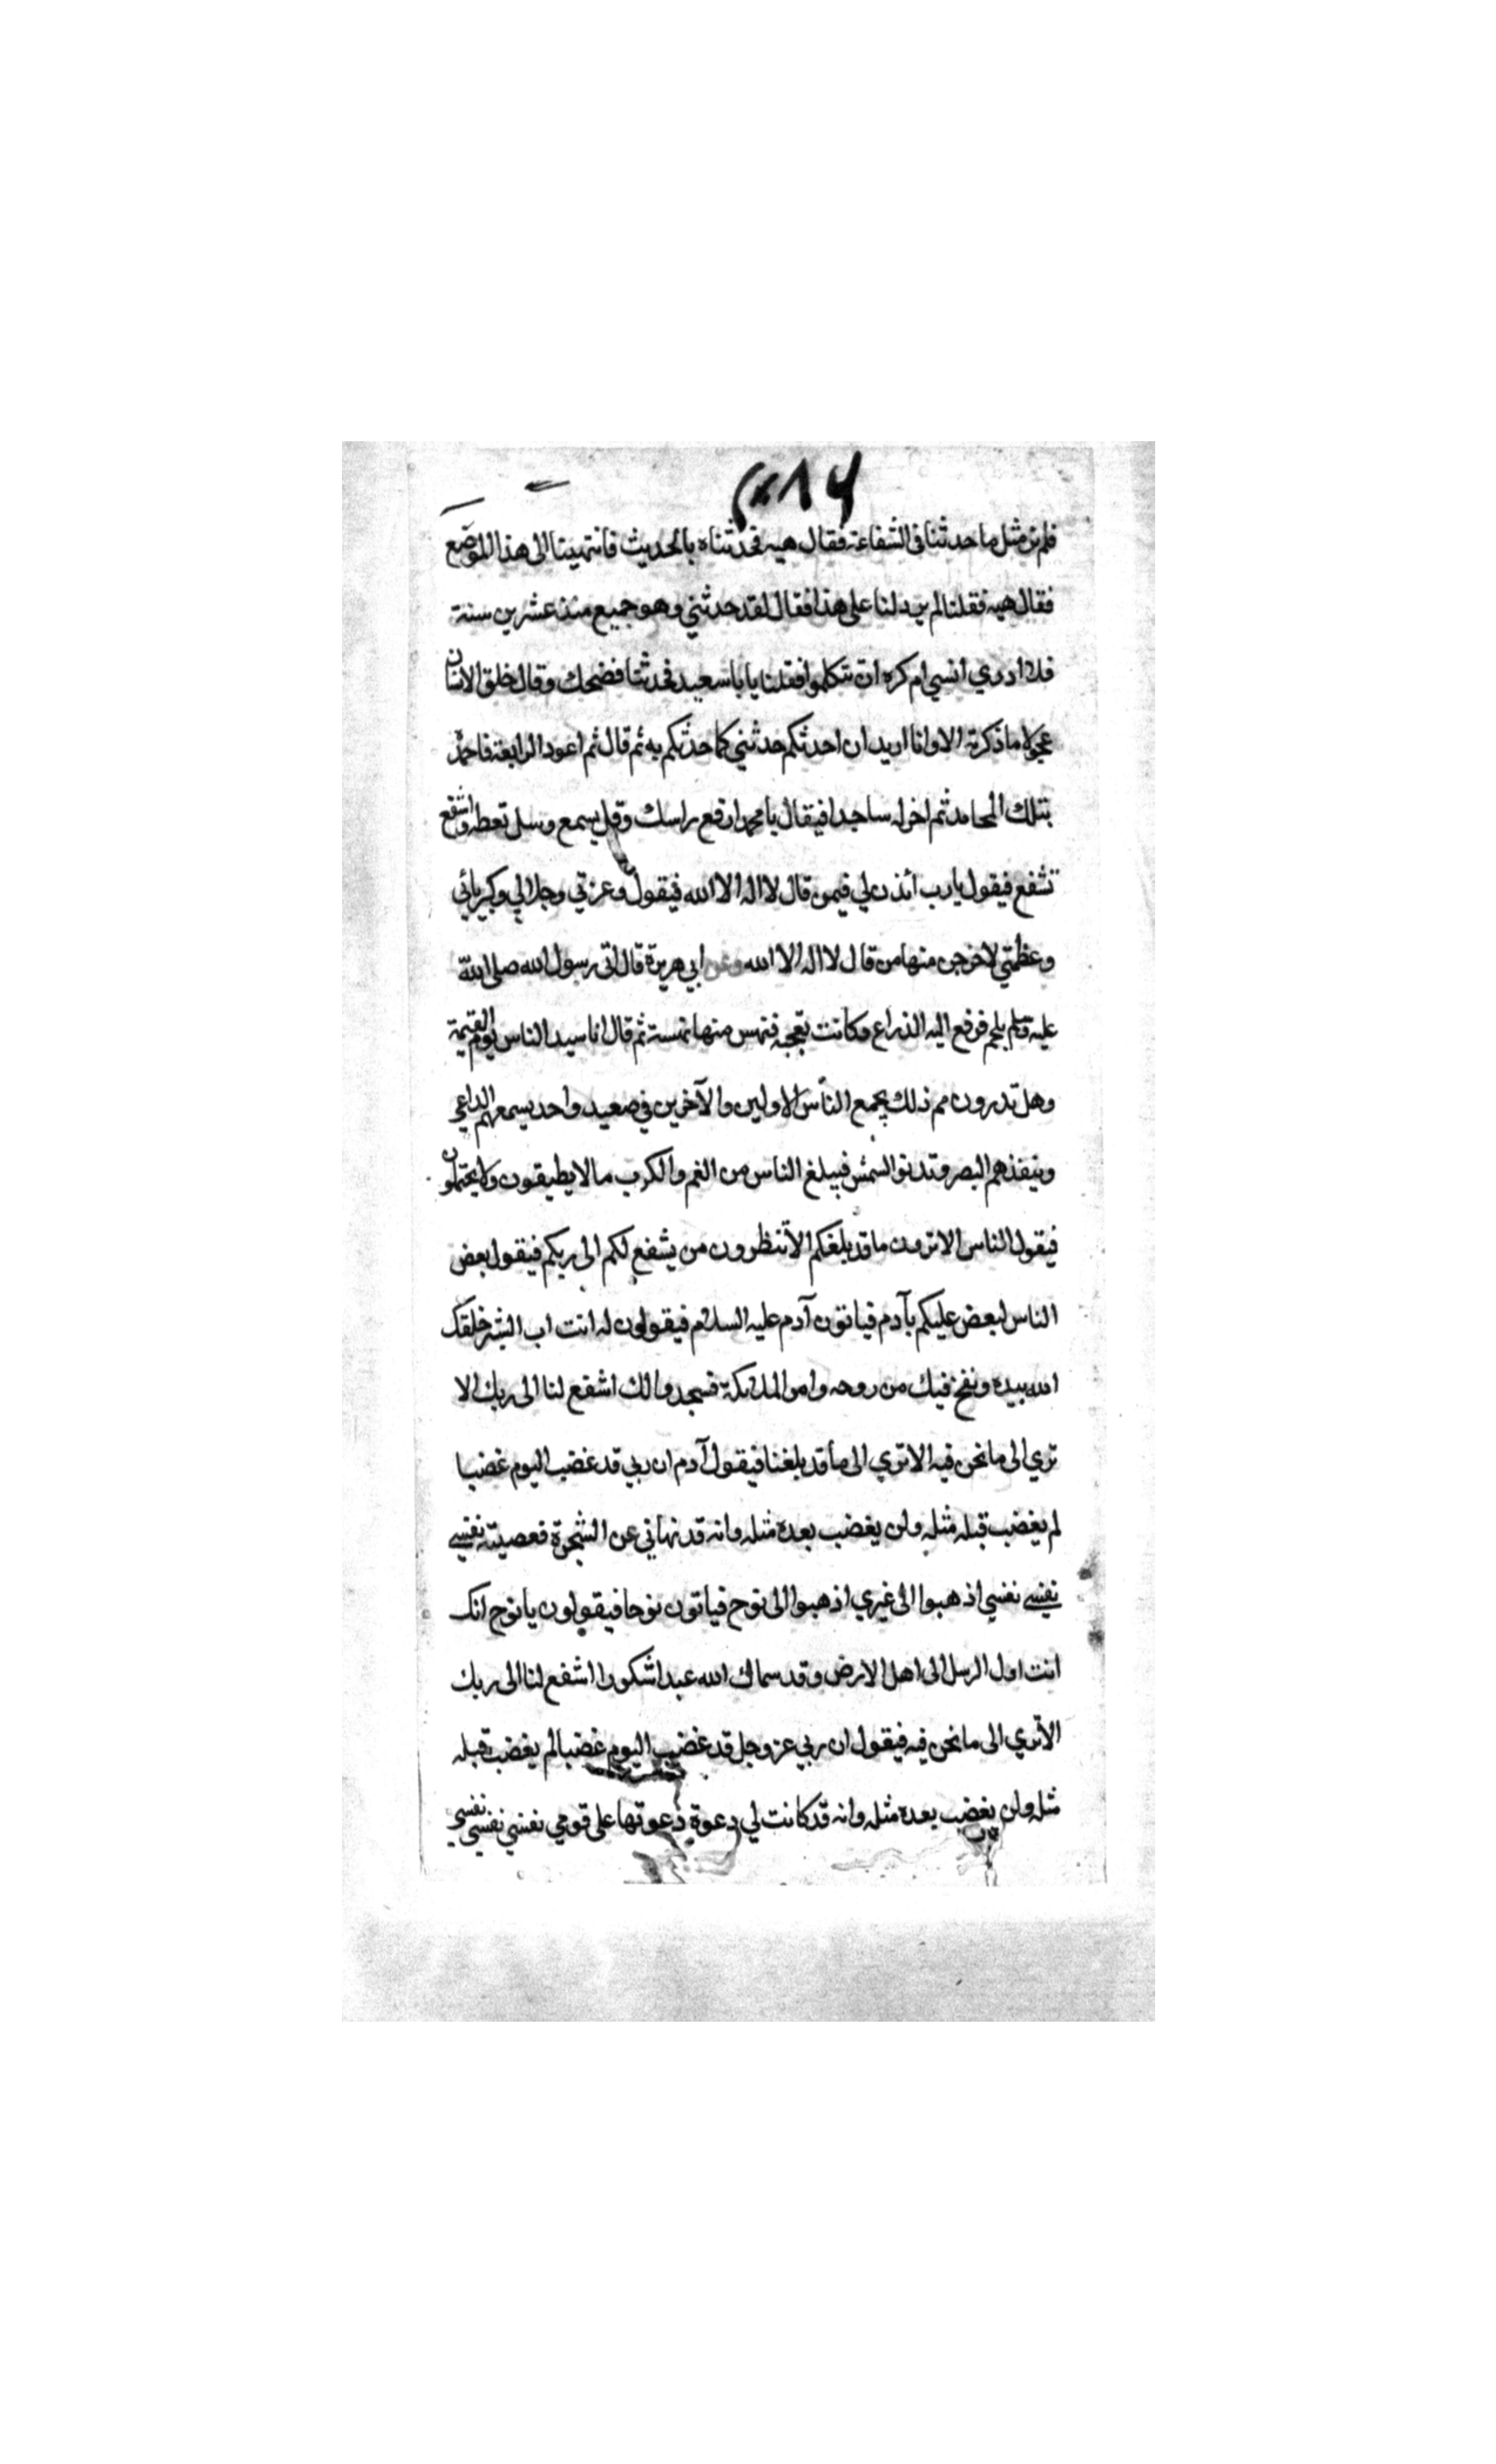 فلم نر مثل ما حدثنا فى الشفاعة فقال هيه فحدثناه بالحديث فانتهينا الى هذا الموضع
فقال هيه فقلنا لم يزد لنا على هذا فقال لقد حدثني وهو جميع منذ عشرين سنة
فلا ادري انسي ام كره ان تتكلموا فقلنا يا با سعيد فحدثنا فضحك وقال خلق الانسان
عجولا ما ذكرته الا وانا اريد ان احدثكم حدثني كما حدثكم به ثم قال ثم اعود الرابعة فاحمده
بتلك المحامد ثم اخر له ساجدا فيقال يا محمد ارفع راسك وقل يسمع وسل تعطه واشفع
تشفع فيقول يا رب ائذن لي فيمن قال لا اله الا الله فيقول وعزتي وجلالي وكبريائي
وعظمتي لاخرجن منها من قال لا اله الا الله وعن ابي هريرة قال اتى رسول الله صلى الله
عليه وسلم بلحم فرفع اليه الذراع وكانت تعجبه فنهس منها نهسة ثم قال انا سيد الناس يوم القيمة
وهل تدرون مم ذلك يجمع الناس الاولين والآخرين في صعيد واحد يسمعهم الداعي
وينفذهم البصر وتدنو الشمس فيبلغ الناس من الغم والكرب ما لا يطيقون ولا يحتملون
فيقول الناس الا ترون ما قد بلغكم الا تنظرون من يشفع لكم الى ربكم فيقول بعض
الناس لبعض عليكم بآدم فياتون آدم عليه السلام فيقولون له انت اب البشر خلقك
الله بيده ونفخ فيك من روحه وامر الملائكة فسجدوا لك اشفع لنا الى ربك الا
تري الى ما نحن فيه الا تري الى ما قد بلغنا فيقول آدم ان ربي قد غضب اليوم غضبا
لم يغضب قبله مثله ولن يغضب بعده مثله وانه قد نهاني عن الشجرة فعصيته نفسي
نفسي نفسي اذهبوا الى غيري اذهبوا الى نوح فياتون نوحا فيقولون يا نوح انك
انت اول الرسل الى اهل الارض وقد سماك الله عبدا شكورا اشفع لنا الى ربك
الا تري الى ما نحن فيه فيقول ان ربي عز وجل قد غضب اليوم غضبا لم يغضب قبله
مثله ولن يغضب بعده مثله وانه قد كانت لي دعوة دعوتها على قومي نفسي نفسي نفسي